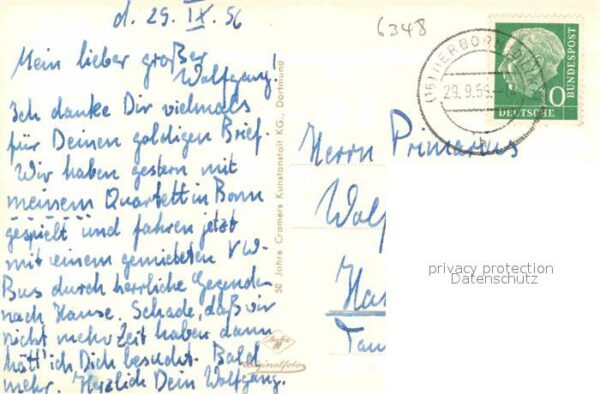 d. 29. IX. 56
Mein lieber großer
Wolfgang!
Ich danke Dir vielmals
für Deinen goldigen Brief.
Wir haben gestern mit
meinem Quartett in Bonn
gespielt und fahren jetzt
mit einem gemieteten VW-
Bus durch herrliche Gegenden
nach Hause. Schade, daß wir
nicht mehr Zeit haben dann
hätt' ich Dich besucht. Bald
mehr. Herzlich Dein Wolfgang.
50 Jahre Cramers Kunstanstalt KG., Dortmund
Agfa
Originalfoto
6348
(16) HERBORN (DILLKR)
29.9.56.
b
10
DEUTSCHE
BUNDESPOST
Herrn Primarius
Wolf
Han
Tau
privacy protection
Datenschutz